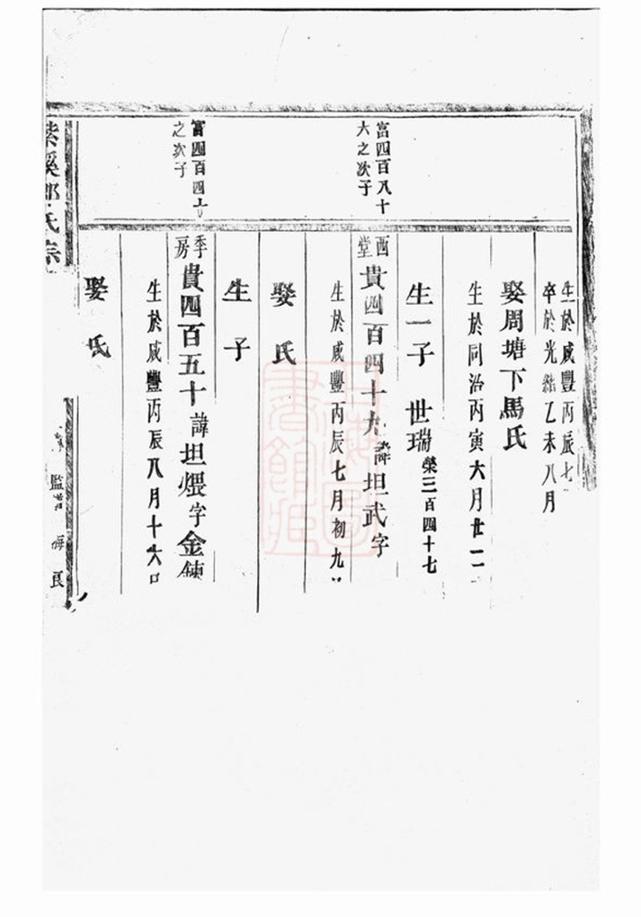 生於咸豐丙辰七
卒於光緒乙未八月
娶周塘下馬氏
生於同治丙寅六月廿二
生一子 世瑞榮三百四十七
富四百八十
六之次子
西堂貴四百四十九諱坦武字
生於咸豐丙辰七月初九
娶氏
生子
富四百四十
之次子
季房貴四百五十諱坦煨字金鍊
生於咸豐丙辰八月十六日
娶氏
紫溪邵氏宗